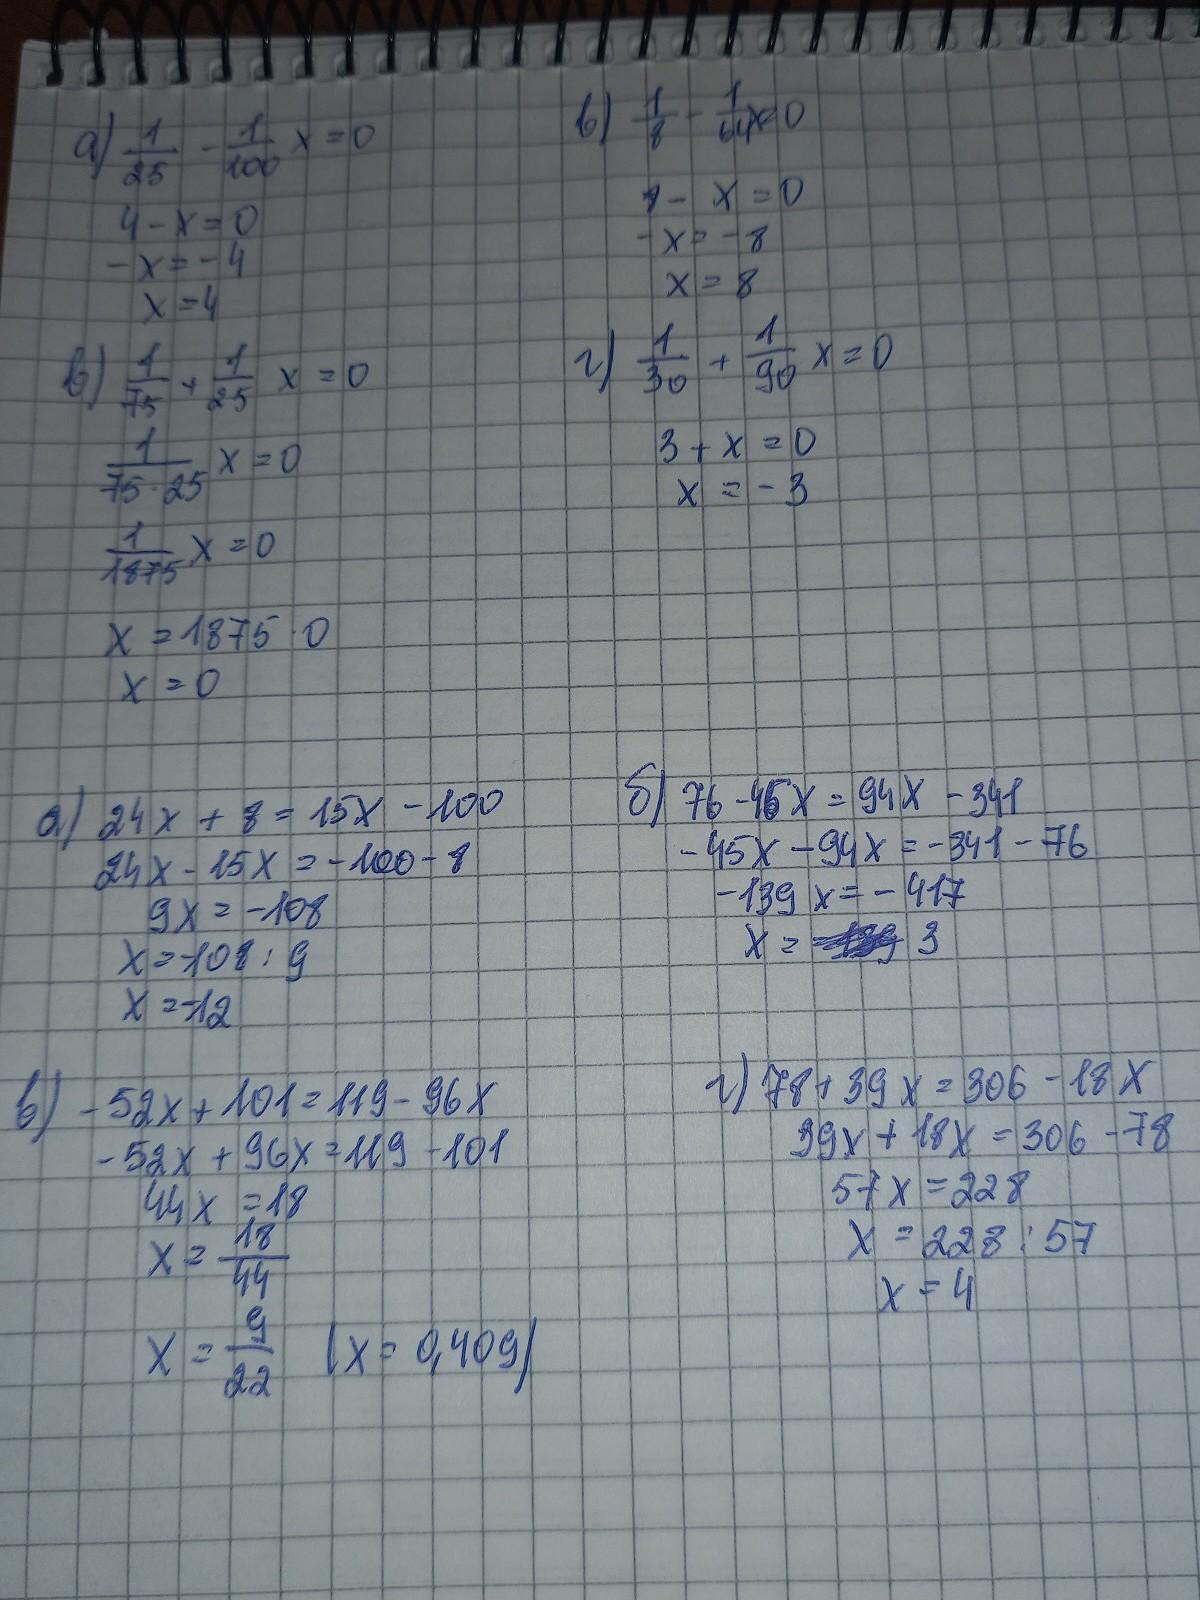 а) 1/25 - 1/100 x = 0
4 - x = 0
- x = - 4
x = 4
в) 1/8 - 1/64 x = 0
8 - x = 0
- x = - 8
x = 8
в) 1/75 + 1/25 x = 0
1/75·25 x = 0
1/1875 x = 0
x = 1875 · 0
x = 0
г) 1/30 + 1/90 x = 0
3 + x = 0
x = - 3
а) 24x + 8 = 15x - 100
24x - 15x = -100 - 8
9x = -108
x = -108 : 9
x = -12
б) 76 - 45x = 94x - 341
- 45x - 94x = -341 - 76
-139x = - 417
x = 3
в) - 52x + 101 = 119 - 96x
- 52x + 96x = 119 - 101
44x = 18
x = 18/44
x = 9/22 (x = 0,409)
г) 78 + 39x = 306 - 18x
39x + 18x = 306 - 78
57x = 228
x = 228 : 57
x = 4